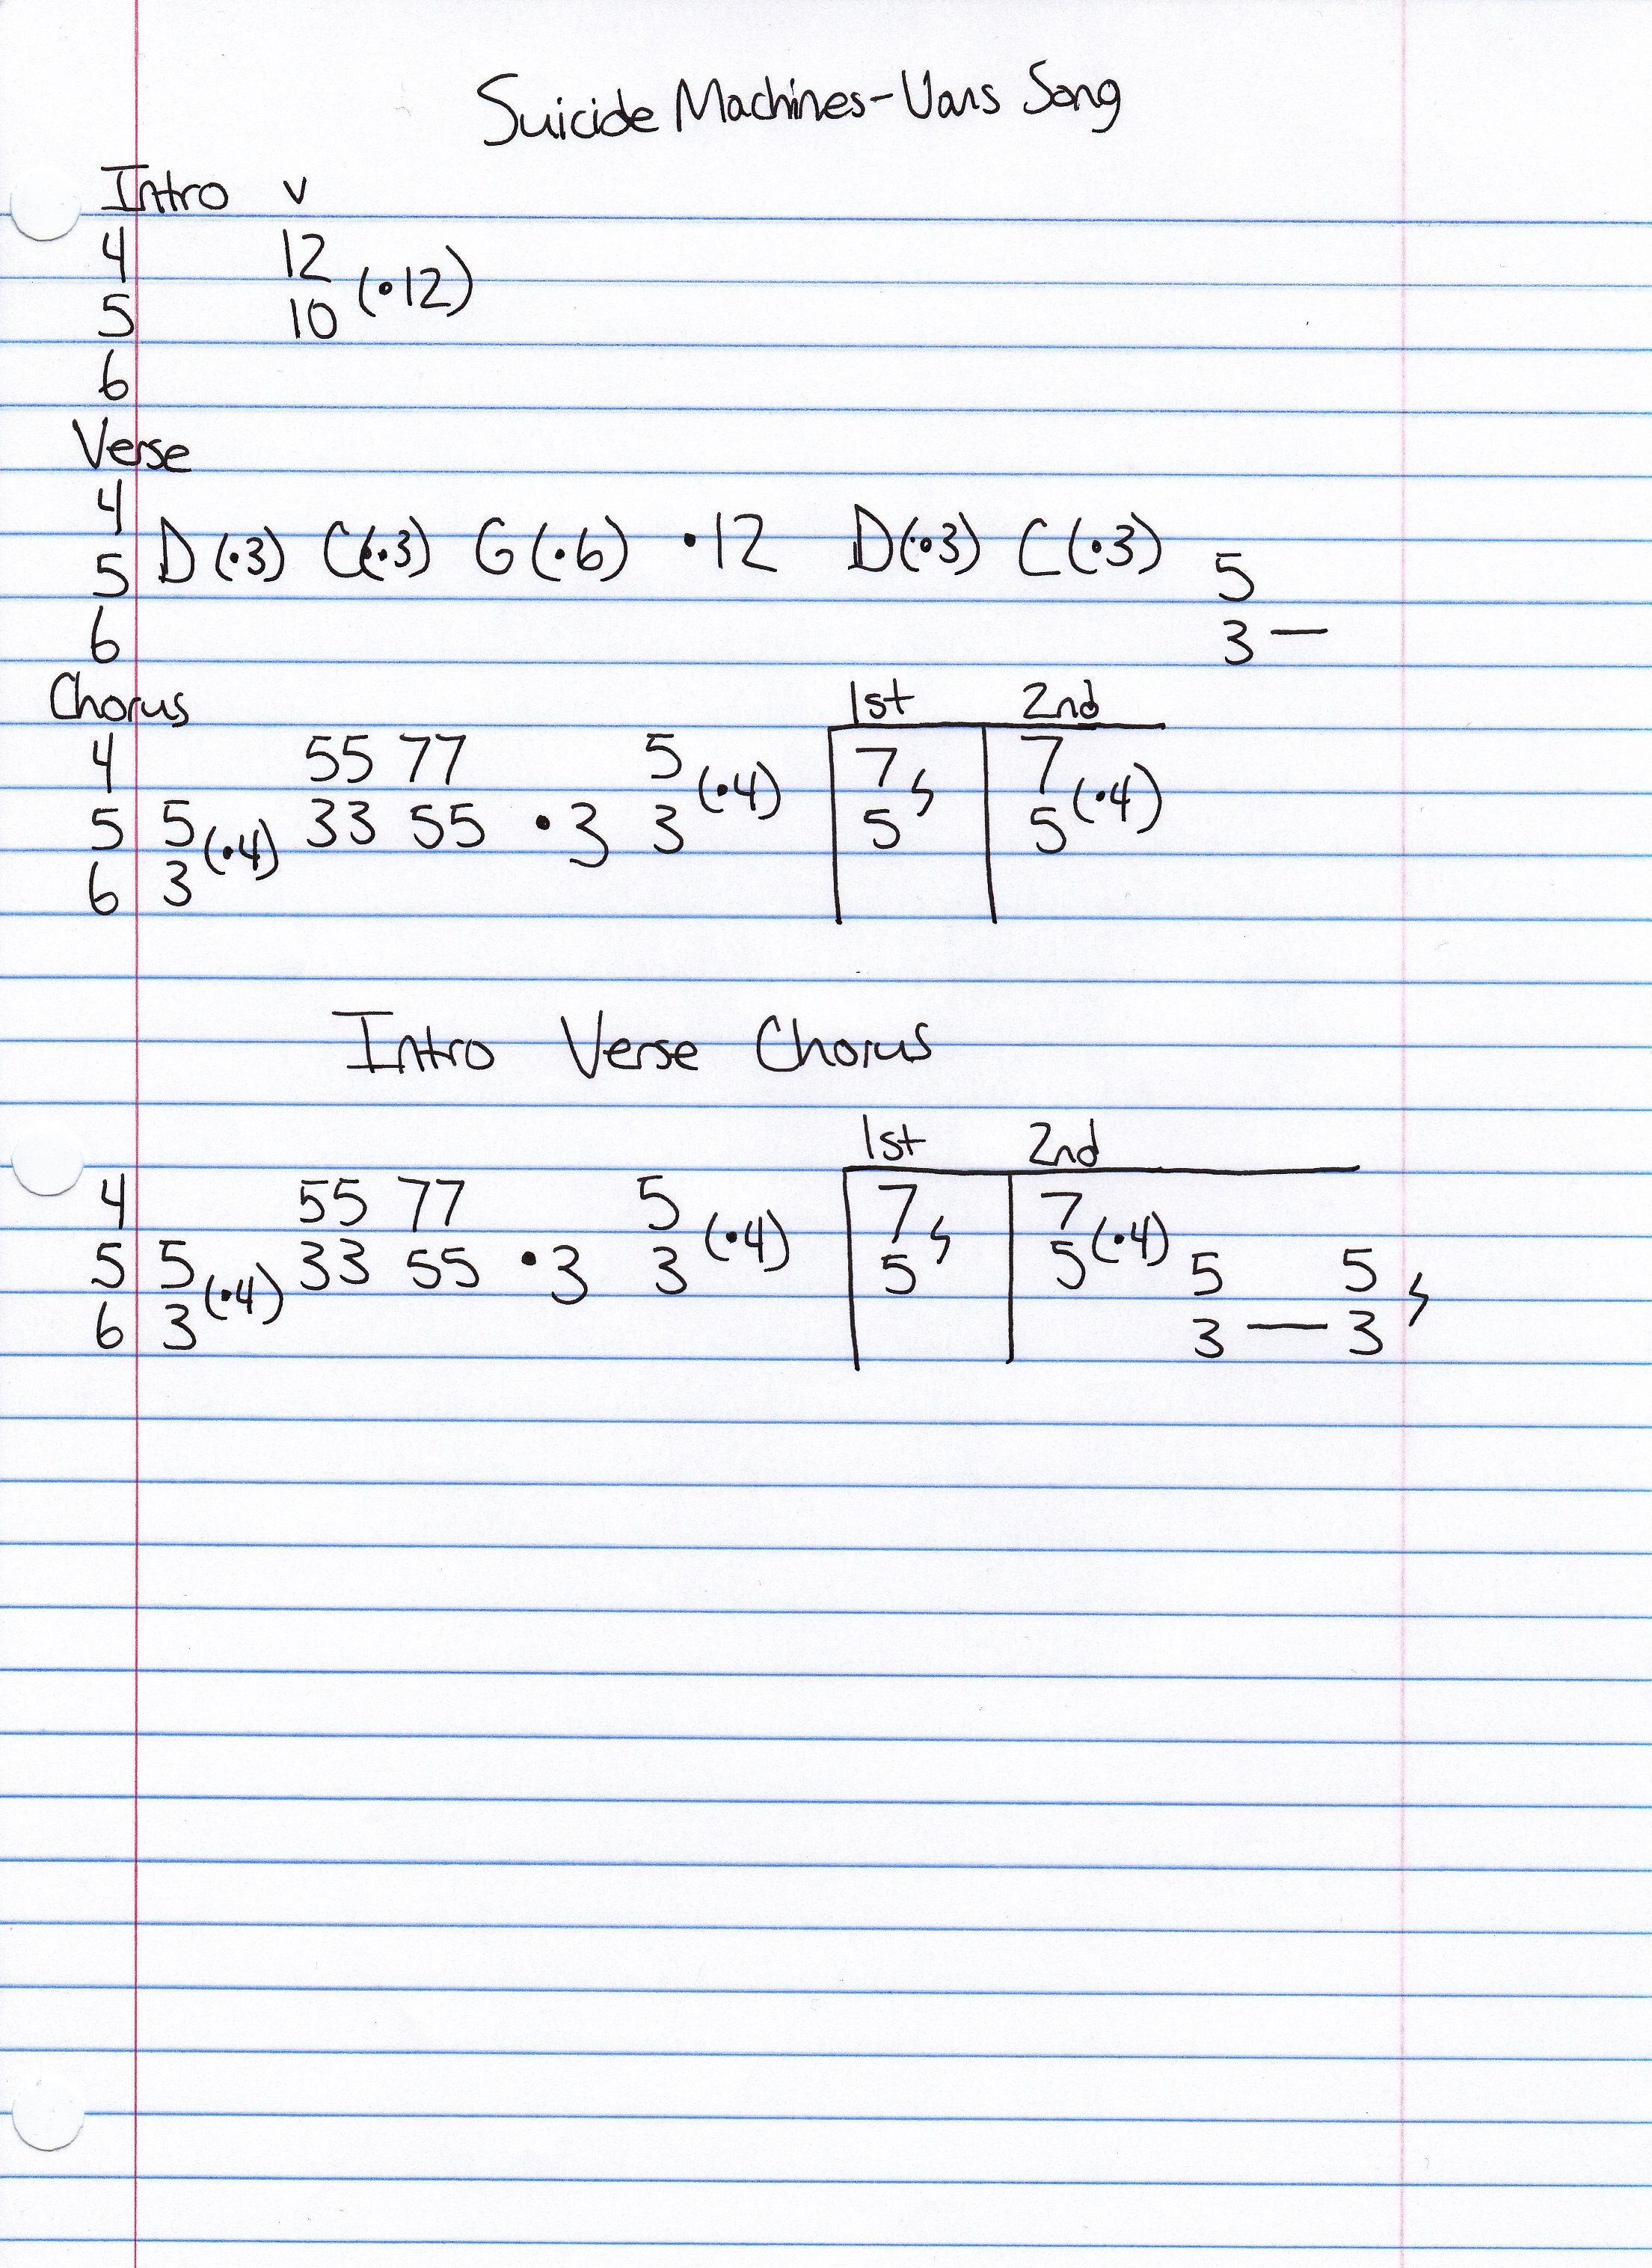 Suicide Machines-Vans Song
Intro v
4 12
5 10 (•12)
6
Verse
4
5 D (•3) C(•3) G(•6) •12 D(•3) C(•3) 5
6 3 —
Chorus 1st 2nd
4 55 77 5 7 7
5 5 (•4) 33 55 •3 3 (•4) 5 5 (•4)
6 3
Intro Verse Chorus
1st 2nd
4 55 77 5 7 7
5 5 (•4) 33 55 •3 3 (•4) 5 5 (•4) 5 5
6 3 3 — 3